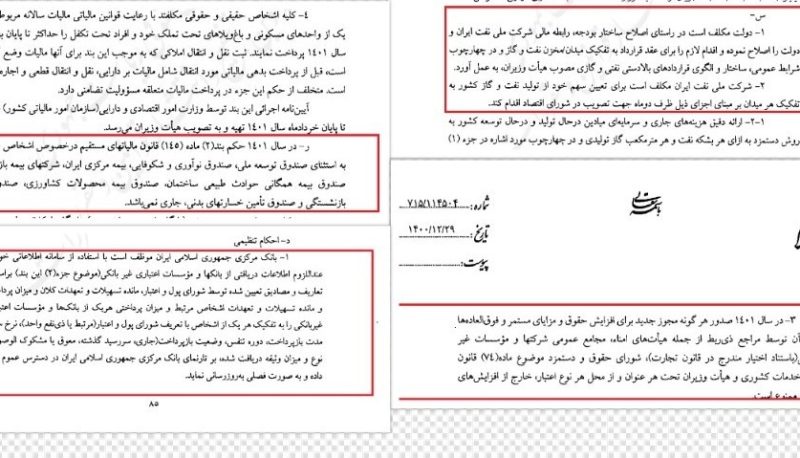 س-
۱- دولت مکلف است در راستای اصلاح ساختار بودجه، رابطه مالی شرکت ملی نفت ایران و
دولت را اصلاح نموده و اقدام لازم را برای عقد قرارداد به تفکیک میدان/مخزن نفت و گاز و در چهارچوب
شرایط عمومی، ساختار و الگوی قراردادهای بالادستی نفتی و گازی مصوب هیأت وزیران، به عمل آورد.
۲- شرکت ملی نفت ایران مکلف است برای تعیین سهم خود از تولید نفت و گاز کشور به
تفکیک هر میدان بر مبنای اجزای ذیل ظرف دوماه جهت تصویب در شورای اقتصاد اقدام کند.
۱-۲- ارائه دقیق هزینه‌های جاری و سرمایه‌ای میادین درحال تولید و درحال توسعه کشور به
روش دستمزد به ازای هر بشکه نفت و هر مترمکعب گاز تولیدی و در چهارچوب مورد اشاره در جزء (۱)
۴- کلیه اشخاص حقیقی و حقوقی مکلفند با رعایت قوانین مالیاتی مالیات سالانه مربوط
یک از واحدهای مسکونی و باغ‌ویلاهای تحت تملک خود و افراد تحت تکفل را حداکثر تا پایان
سال ۱۴۰۱ پرداخت نمایند. ثبت نقل و انتقال املاکی که به موجب این بند برای آنها مالیات وضع
است، قبل از پرداخت بدهی مالیاتی مورد انتقال شامل مالیات بر دارایی، نقل و انتقال قطعی و اجاره
است. متخلف از حکم این جزء در پرداخت مالیات متعلقه مسؤولیت تضامنی دارد.
آیین‌نامه اجرائی این بند توسط وزارت امور اقتصادی و دارایی(سازمان امور مالیاتی کشور)
تا پایان خردادماه سال ۱۴۰۱ تهیه و به تصویب هیأت وزیران می‌رسد.
ر- در سال ۱۴۰۱ حکم بند(۲) ماده (۱۴۵) قانون مالیاتهای مستقیم درخصوص اشخاص
به استثنای صندوق توسعه ملی، صندوق نوآوری و شکوفایی، بیمه مرکزی ایران، شرکتهای بیمه
صندوق بیمه همگانی حوادث طبیعی ساختمان، صندوق بیمه محصولات کشاورزی،
بازنشستگی و صندوق تأمین خسارتهای بدنی، جاری نمی‌باشد.
باسمه تعالی
شماره: ۷۱۵/۱۱۴۵۰۴
تاریخ: ۱۴۰۰/۱۲/۲۹
پیوست:
د- احکام تنظیمی
۱- بانک مرکزی جمهوری اسلامی ایران موظف است با استفاده از سامانه اطلاعاتی
عنداللزوم اطلاعات دریافتی از بانکها و مؤسسات اعتباری غیر بانکی(موضوع جزء(۲) این بند)
تعاریف و مصادیق تعیین شده توسط شورای پول و اعتبار، مانده تسهیلات و تعهدات کلان و میزان
و مانده تسهیلات و تعهدات اشخاص مرتبط و میزان پرداختی هریک از بانک‌ها و مؤسسات
غیربانکی را به تفکیک هر یک از اشخاص با تعریف شورای پول و اعتبار(مرتبط یا ذی‌نفع واحد)، نرخ
مدت بازپرداخت، دوره تنفس، وضعیت بازپرداخت(جاری، سررسید گذشته، معوق یا مشکوک
نوع و میزان وثیقه دریافت شده، بر تارنمای بانک مرکزی جمهوری اسلامی ایران در دسترس عموم
داده و به صورت فصلی به‌روزرسانی نماید.
۸۵
۳- در سال ۱۴۰۱ صدور هر گونه مجوز جدید برای افزایش حقوق و مزایای مستمر و فوق‌العاده‌ها
آن توسط مراجع ذی‌ربط از جمله هیأت‌های امناء، مجامع عمومی شرکتها و مؤسسات غیر
(باستناد اختیار مندرج در قانون تجارت)، شورای حقوق و دستمزد موضوع ماده(۷۴) قانون
خدمات کشوری و هیأت وزیران تحت هر عنوان و از محل هر نوع اعتبار، خارج از افزایش‌های
ممنوع است.